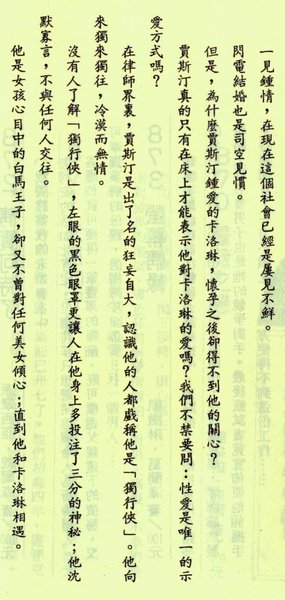 一見鍾情，在現在這個社會已經是屢見不鮮。
閃電結婚也是司空見慣。
但是，為什麼賈斯汀鍾愛的卡洛琳，懷孕之後卻得不到他的關心？
賈斯汀真的只有在床上才能表示他對卡洛琳的愛嗎？我們不禁要問：性愛是唯一的示
愛方式嗎？
在律師界裏，賈斯汀是出了名的狂妄自大，認識他的人都戲稱他是「獨行俠」。他向
來獨來獨往，冷漠而無情。
沒有人了解「獨行俠」，左眼的黑色眼罩更讓人在他身上多投注了三分的神秘；他沈
默寡言，不與任何人交往。
他是女孩心目中的白馬王子，卻又不曾對任何美女傾心；直到他和卡洛琳相遇。